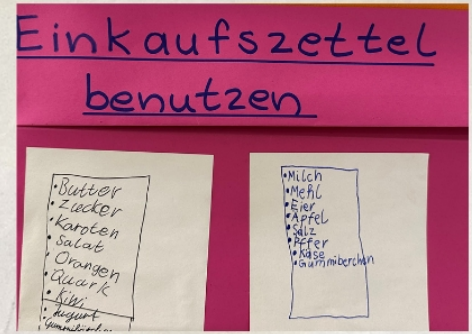 Einkaufszettel
benutzen
• Butter
• Zucker
• Karoten
• Salat
• Orangen
• Quark
• Kiwi
• Milch
• Mehl
• Eier
• Apfel
• Salz
• Pffer
• Käse
• Gummiberchen